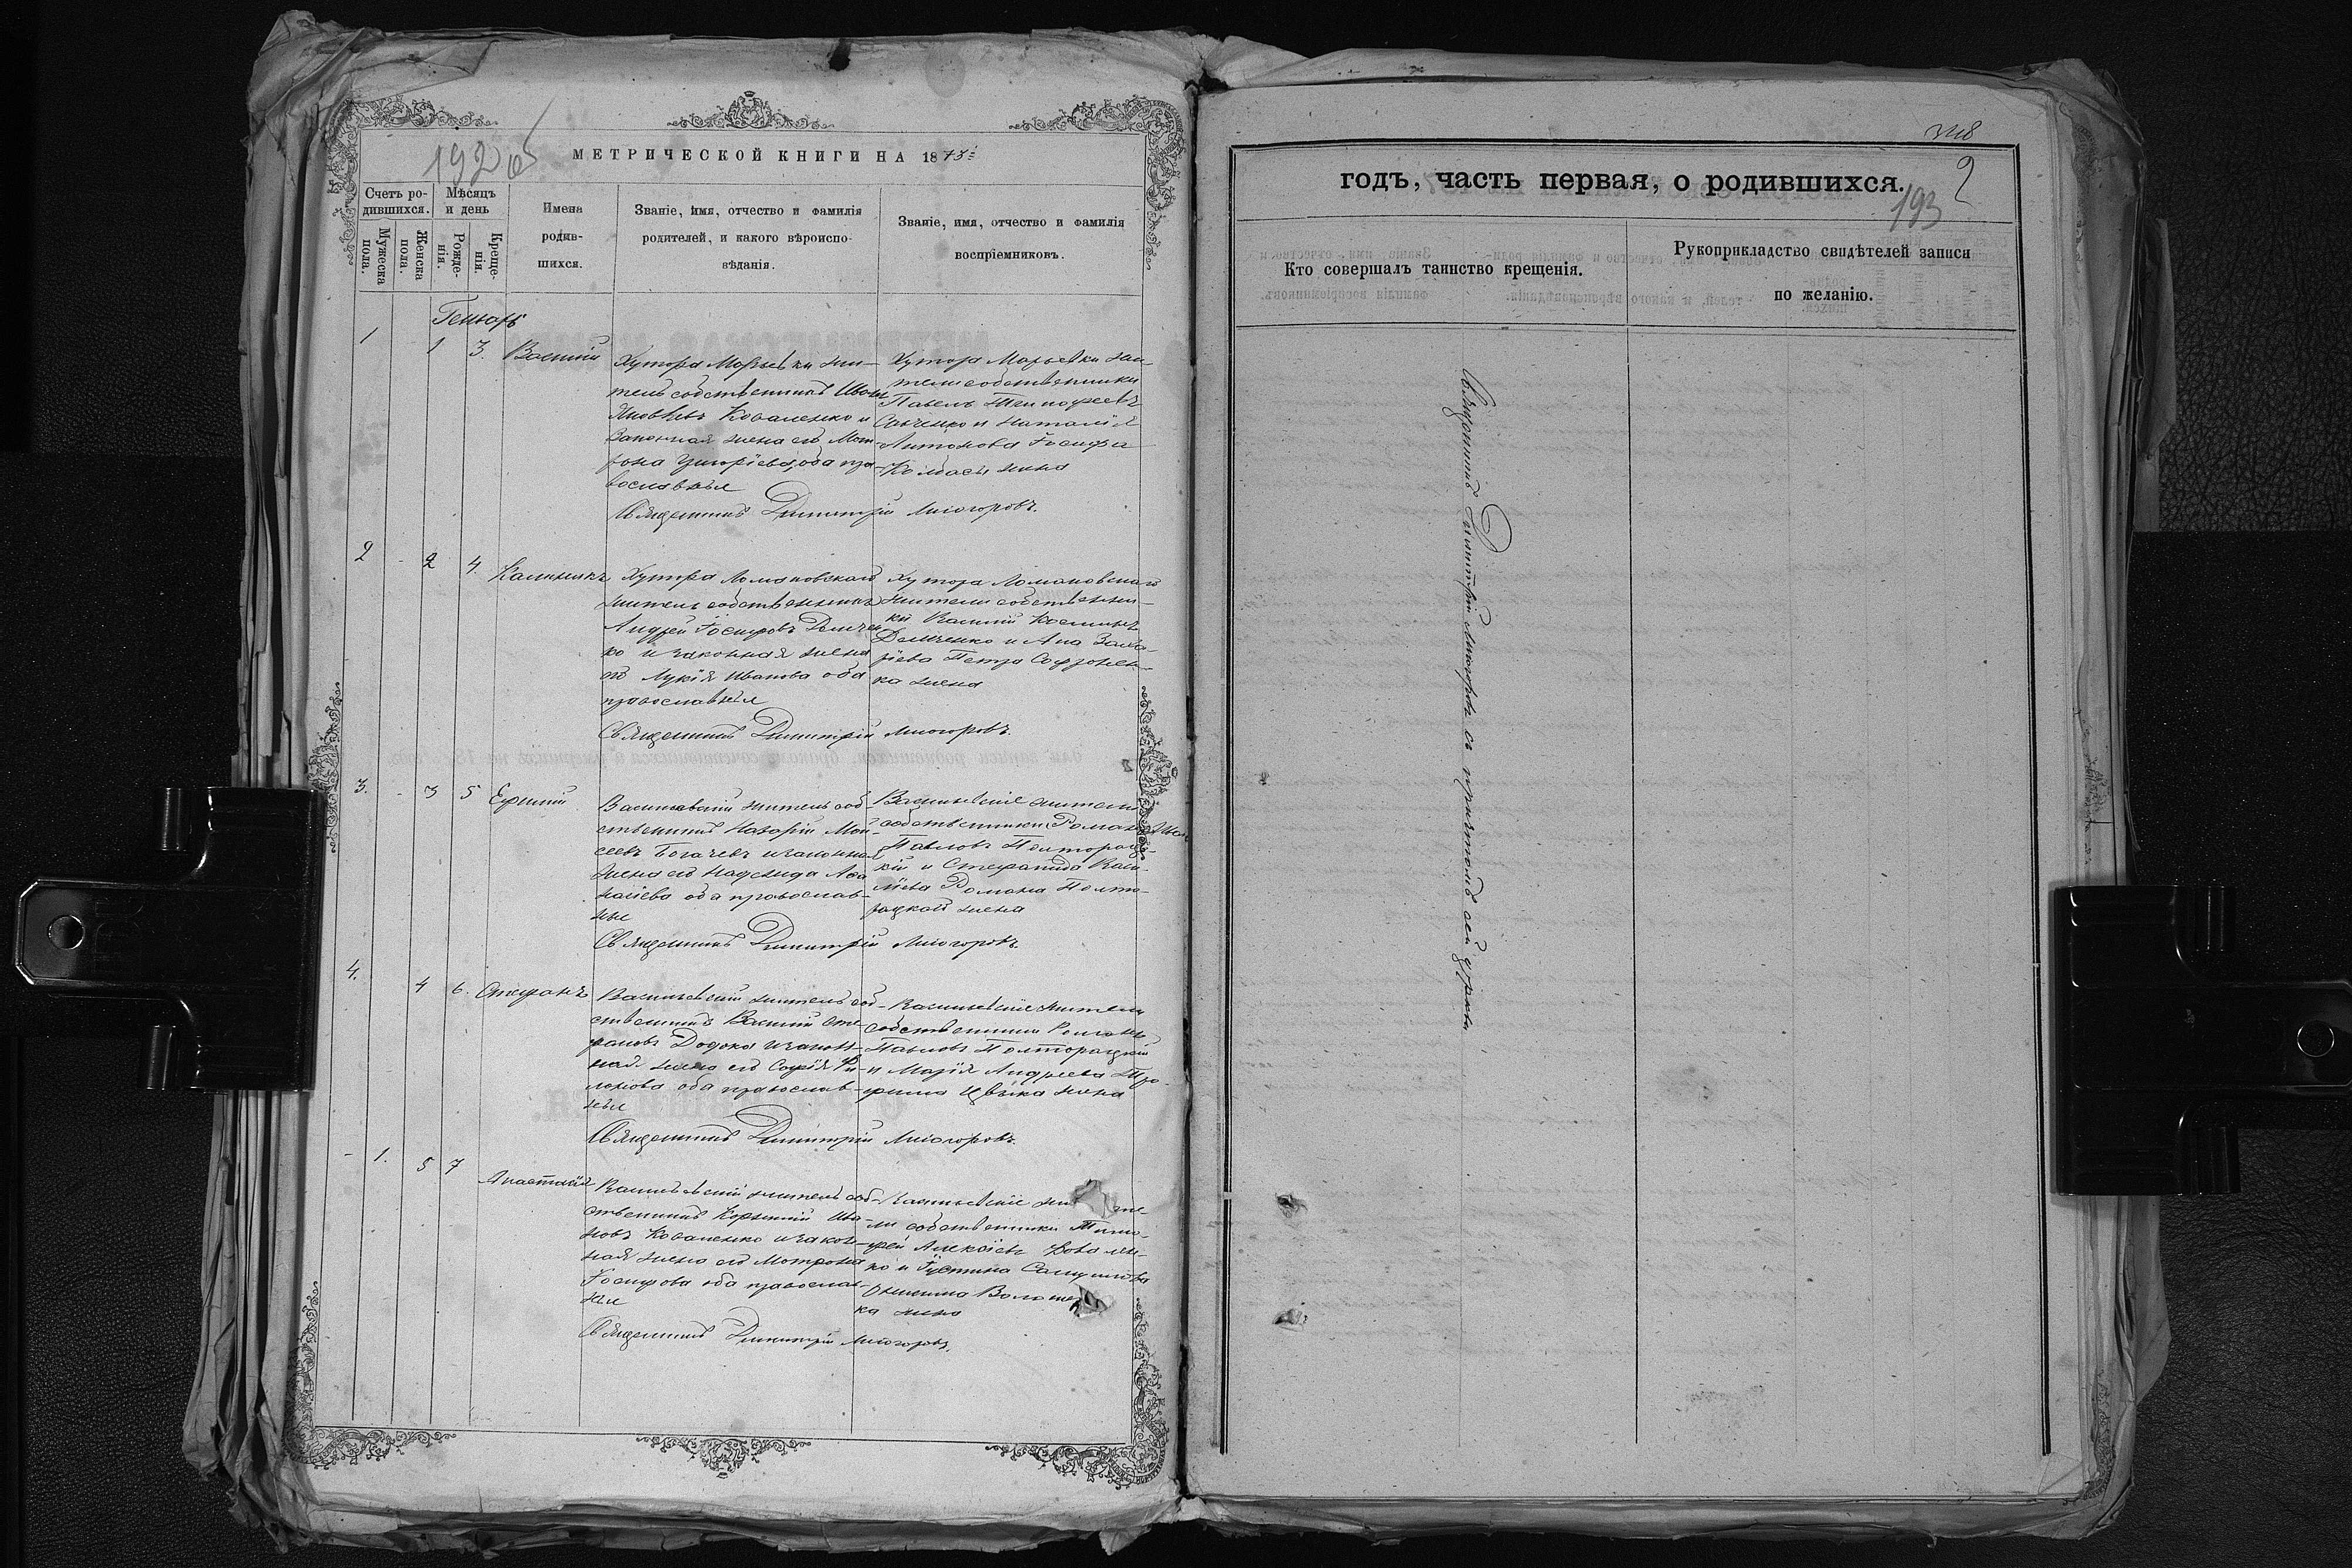 192 об
МЕТРИЧЕСКОЙ КНИГИ НА 1873й
Счетъ ро-
дившихся.
Мужеска
пола.
Женска
пола.
Мѣсяцъ
и день
Рожде-
нія.
Креще-
нія.
Имена
родив-
шихся.
Званіе, имя, отчество и фамилія
родителей, и какого вѣроиспо-
вѣданія.
Званіе, имя, отчество и фамилія
воспріемниковъ.
Генварь
1 1 3. Василій
Хутора Марьевки жи-
тель собственникъ Иванъ
Яковлевъ Коваленко и
Законная жена его Мат-
рона Григоріева, оба пра-
вославные
Хутора Марьевки жи-
тели собственники
Павелъ Тимофеевъ
Савченко и Наталія
Антонова Іосифа
Колбасы жена
Священникъ Димитрій
2 - 2 4. Калиникъ
Хутора Ломаковскаго
житель собственникъ
Андрей Іосифовъ Демчен
ко и законная жена
его Лукія Иванова оба
православные
Хутора Ломаковскаго
жители собственни-
ки Василій Косминъ
Демченко и Ана Заха-
ріева Петра Софронен-
ка жена
Священникъ Димитрій
3. - 3 5 Ефимій
Васильевскій житель соб
ственникъ Назарій Мой-
сеевъ Богачевъ и законная
жена его Надежда Аѳа
насіева оба православ-
ные
Васильевскіе жители
собственники Романъ
Павловъ Полторац-
кій и Стефанида Васи-
ліева Романа Полто-
рацкаго жена
Священникъ Димитрій
4. 4 6. Стефанъ
Васильевскій житель соб-
ственникъ Василій Сте-
фановъ Додока и закон-
ная жена его Софія Фи-
лонова оба православ-
ные
Васильевскіе жители
собственники Романъ
Павловъ Полторацкій
и Марія Андреева Тро-
фима жена
Священникъ Димитрій
- 1. 5 7 Анастасія
Васильевскій житель соб-
ственникъ Корнилій Ива-
новъ Коваленко и закон-
ная жена его Матрона
Іосифова оба православ-
ные
Васильевскіе жите-
ли собственники Тимо-
фей Алексіевъ Ковален-
ко и Іустина Самуилова
ка жена
Священникъ Димитрій
348
2
193
годъ, часть первая, о родившихся.
Кто совершалъ таинство крещенія.
Рукоприкладство свидѣтелей записи
по желанію.
Священникъ Димитрій съ причтомъ сей церкви